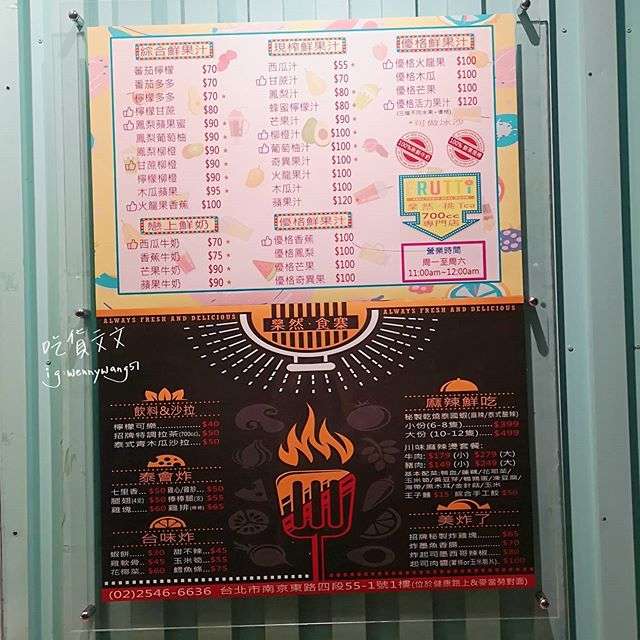 綜合鮮果汁
蕃茄檸檬 $70
番茄多多 $70
檸檬多多 $70
檸檬甘蔗 $80
鳳梨蘋果蜜 $90
鳳梨葡萄柚 $90
鳳梨柳橙 $90
甘蔗柳橙 $90
檸檬柳橙 $90
木瓜蘋果 $95
火龍果香蕉 $100
戀上鮮奶
西瓜牛奶 $70
香蕉牛奶 $75
芒果牛奶 $90
蘋果牛奶 $90
現榨鮮果汁
西瓜汁 $55
甘蔗汁 $70
鳳梨汁 $80
蜂蜜檸檬汁 $80
芒果汁 $90
柳橙汁 $100
葡萄柚汁 $100
奇異果汁 $100
火龍果汁 $100
木瓜汁 $100
蘋果汁 $120
優格鮮果汁
優格香蕉 $100
優格鳳梨 $100
優格芒果 $100
優格奇異果 $100
優格鮮果汁
優格火龍果 $100
優格木瓜 $100
優格芒果 $100
優格活力果汁 $120
(三種不同水果+優格)
可做冰沙
FRUTTi
菓然·挑Tea
700cc
專門店
營業時間
周一至周六
11:00am~12:00am
ALWAYS FRESH AND DELICIOUS
菓然·食塞
ALWAYS FRESH AND DELICIOUS
吃貨文文
ig:wennywang51
飲料&沙拉
檸檬可樂 $40
招牌特調拉茶(700cc) $50
泰式青木瓜沙拉 $50
泰會炸
七里香 $50 雞心/雞胗 $50
腿翅 $50 棒棒腿 $55
雞塊 $60 雞排 $65
台味炸
蝦餅 $30 甜不辣 $45
雞軟骨 $45 玉米筍 $55
花椰菜 $60 鱈魚條 $75
麻辣鮮吃
秘製乾燒泰國蝦(麻辣/泰式酸辣)
小份(6-8隻) $399
大份(10-12隻) $499
川味麻辣燙套餐:
牛肉: $179 (小) $279 (大)
豬肉: $149 (小) $249 (大)
王子麵 $15 綜合手工餃 $50
美炸了
招牌秘製炸雞塊 $65
炸墨魚香腸 $70
炸起司墨西哥辣椒 $80
起司肉醬(薯條or玉米脆片) $100
(02)2546-6636 台北市南京東路四段55-1號1樓(位於健康路上&麥當勞對面)